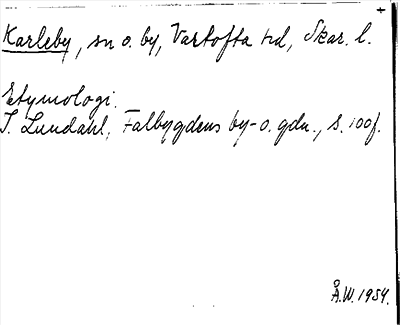 +
Karleby, sn o. by, Vartofta hd, Skar. l.
Etymologi.
I. Lundahl, Falbygdens by- o. gdn., s. 100f.
Å.W. 1954.